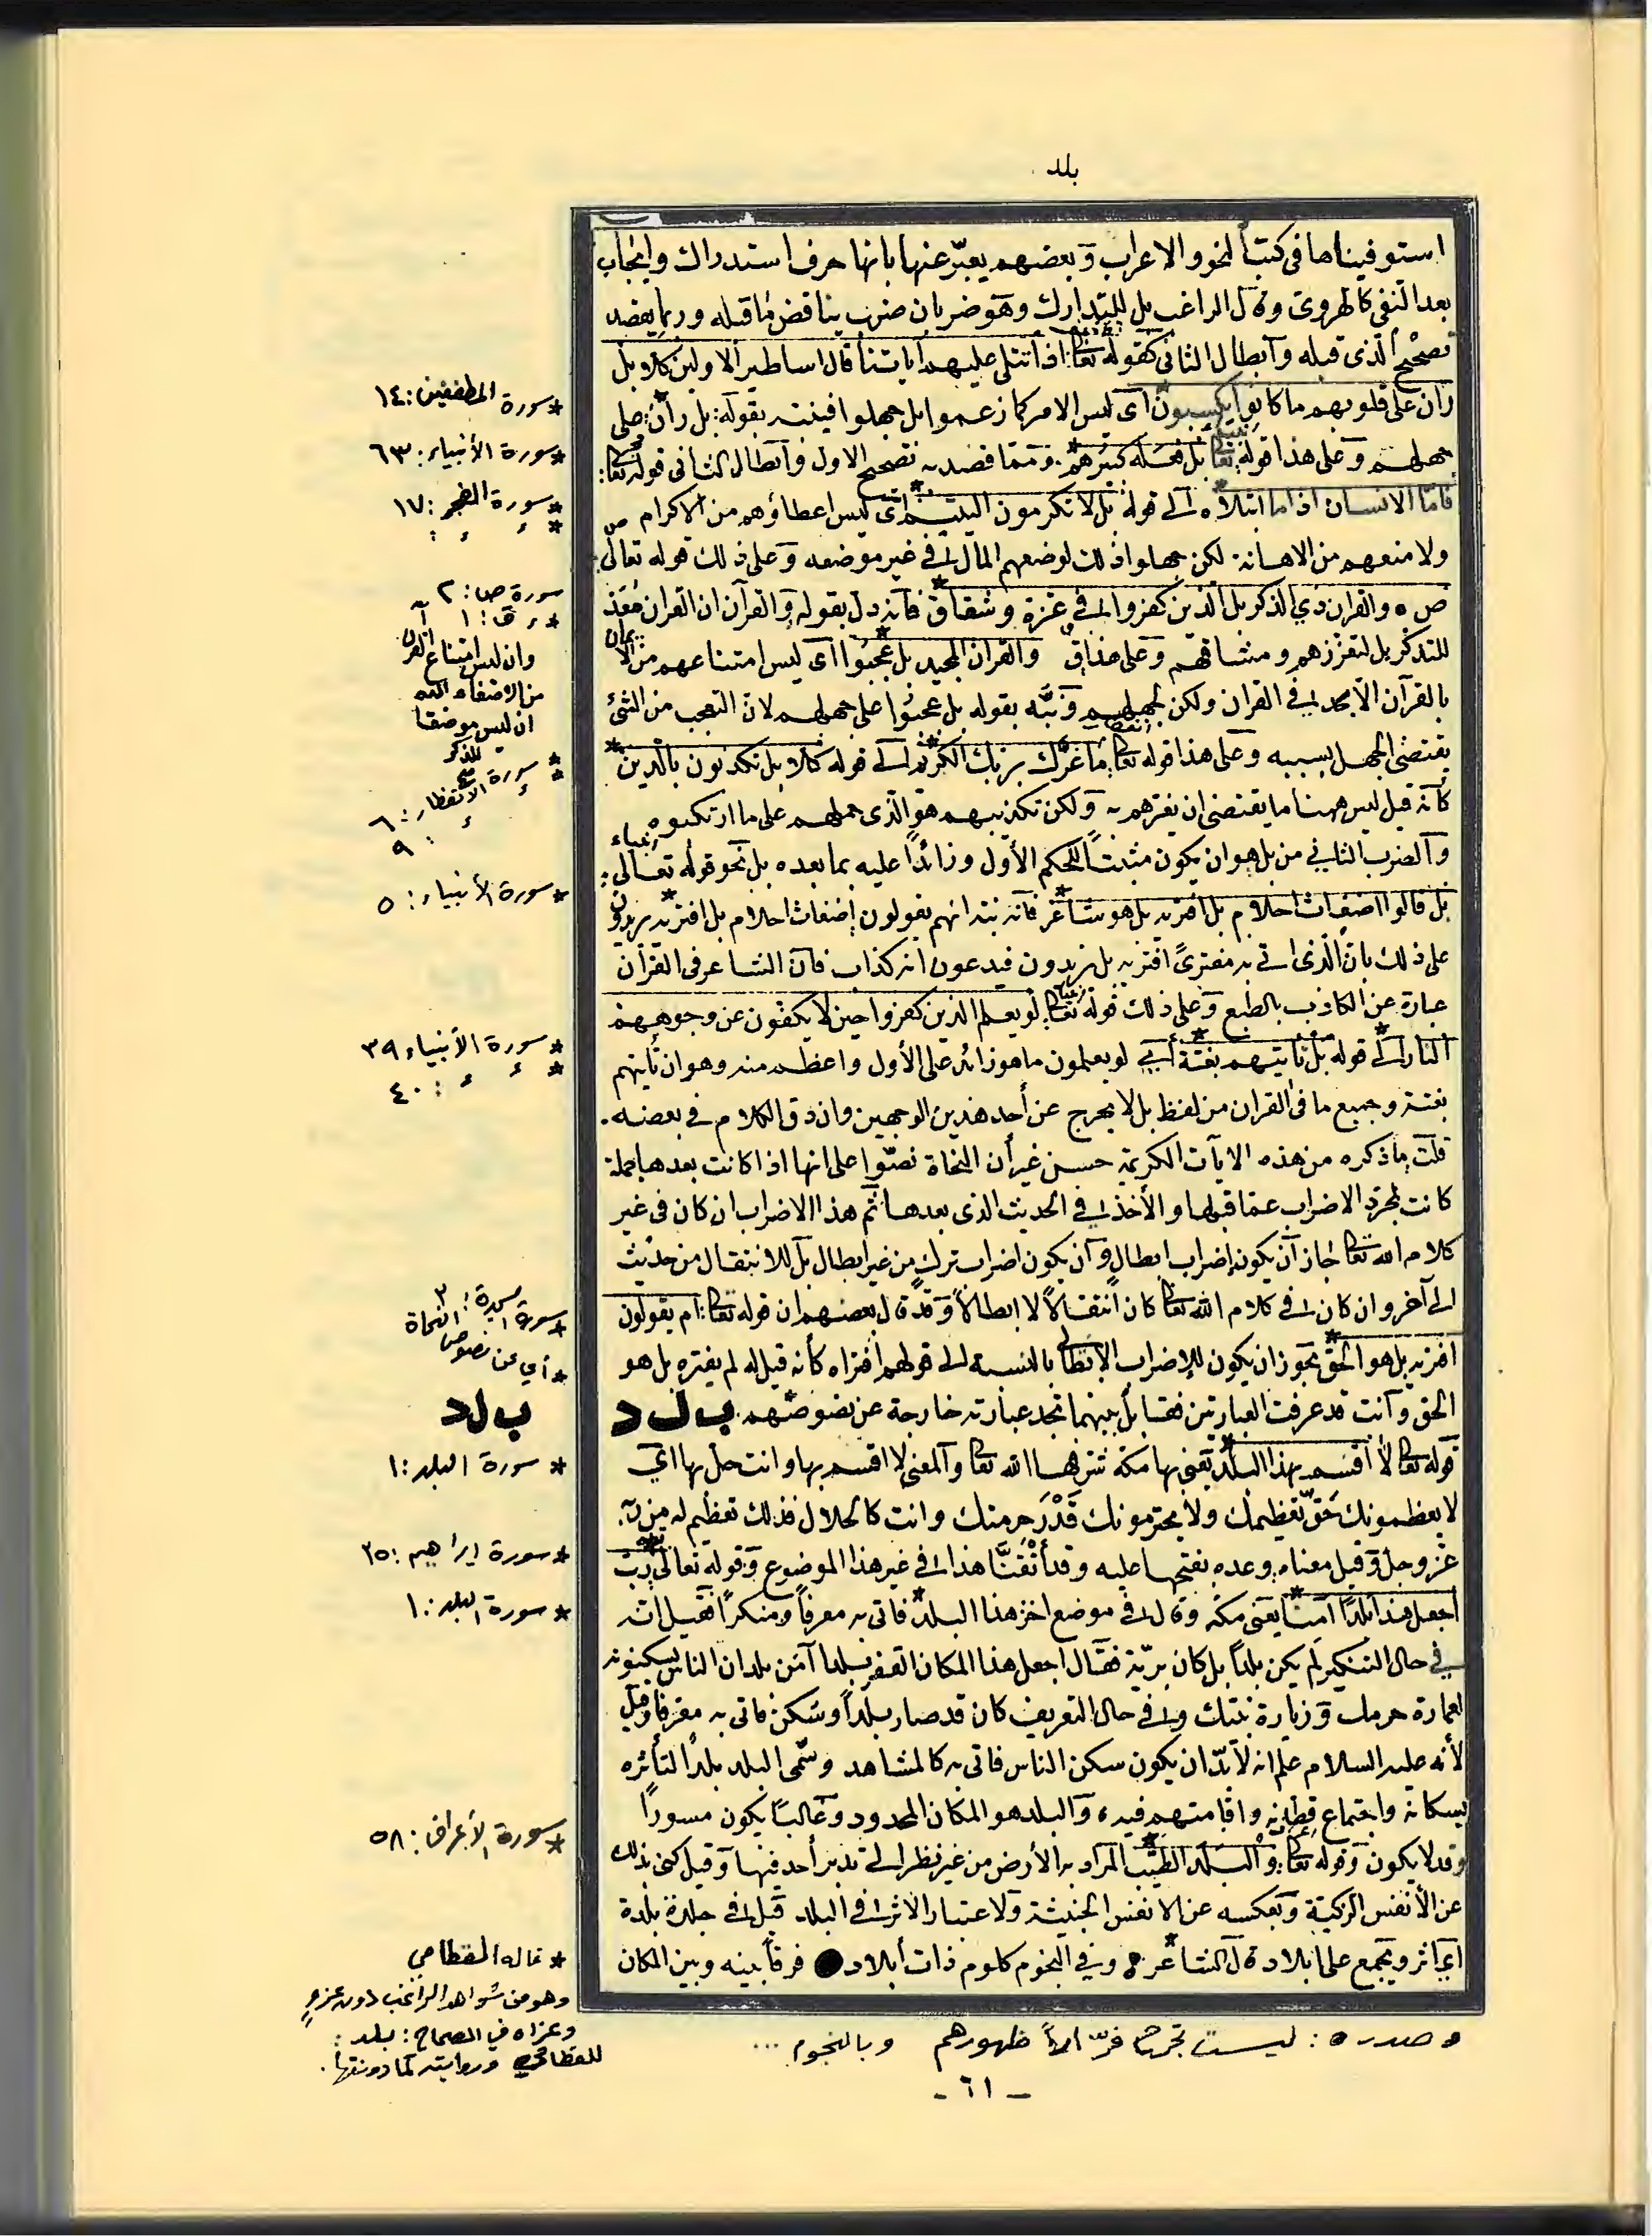 بلد
استوفيناها في كتب النحو والاعراب وبعضهم يعبّر عنها بانها حرف استدراك وايجاب
بعد النفي كالهروي وقال الراغب بل للتدارك وهو ضربان ضرب يناقض ما قبله وربما يقصد
تصحيح الذي قبله وابطال الثاني كقوله تعا: اذا تتلى عليهم اياتنا قال اساطير الاولين كلا بل
ران على قلوبهم ما كانوا يكسبون اى ليس الامر كما زعموا بل جهلوا فينته بقوله: بل ران: على
جهلهم وعلى هذا قوله تعا بل فعله كبيرهم. ومما قصد به تصحيح الاول وابطال الثانى قوله تعا:
فامّا الانسان اذا ما ابتلاه الى قوله بل لا تكرمون اليتيم اى ليس اعطاؤهم من الاكرام
ولا منعهم من الاهانة لكن جهلوا ذلك لوضعهم المال في غير موضعه وعلى ذلك قوله تعالى:
ص ه والقران ذي الذكر بل الذين كفروا في عزة وشقاق فانه دل بقوله والقرآن ان القران مقذ
للتذكر بل لتعززهم ومشاقهم وعلى هذا ق والقران المجيد بل عجبوا اى ليس امتناعهم من الايمان
بالقرآن الا مجد في القران ولكن لجهلهم ونبّه بقوله بل عجبوا على جهلهم لان التعجب من الشئ
يقتضى الجهل بسببه وعلى هذا قوله تعا: ما غرّك بربك الكريم الى قوله كلا بل تكذبون بالدين
كأنه قيل ليس ههنا ما يقتضى ان يغرهم به ولكن تكذيبهم هو الذى حملهم على ما ارتكبوه
والضرب الثاني من بل هو ان يكون مثبتاً للحكم الأول وزائداً عليه بما بعده بل نحو قوله تعالى:
بل قالوا اضغاث احلام بل افتريه بل هو شاعر فانه نبّه انهم يقولون اضغاث احلام بل افتريه يزيدون
على ذلك بان الّذى اتى به مفترىً افتريه بل يزيدون فيدعون انه كذاب فان الشاعر فى القرآن
عبارة عن الكاذب بالطبع وعلى ذلك قوله تعا: لو يعلم الذين كفروا حين لا يكفون عن وجوههم
النار الى قوله بل تأتيهم بغتة أى لو يعلمون ما هو زائد على الأول واعظم منه وهو ان تأتيهم
بغتة وجميع ما فى القران من لفظ بل لا يخرج عن أحد هذين الوجهين وان دق الكلام في بعضه.
قلت ما ذكره من هذه الايات الكريمة حسن غير أن النحاة نصّوا على انها اذا كانت بعدها جملة
كانت لمجرّد الاضراب عما قبلها والأخذ في الحديث الذى بعدها ثم هذا الاضراب ان كان فى غير
كلام الله تعا جاز أن يكون إضراب ابطال وان يكون اضراب ترك من غير ابطال بل للانتقال من حديث
الى آخر وان كان في كلام الله تعا كان انتقالاً لا ابطالاً وقد قال بعضهم ان قوله تعا: ام يقولون
افتريه بل هو الحق يجوز ان يكون للإضراب الإبطالى بالنسبة الى قولهم افتراه كأنه قيل له لم يفتره بل هو
الحق وانت قد عرفت العبارتين فقابل بينهما تجد عبارته خارجة عن نصوصهم. ب ل د
قوله تعا لا أقسم بهذا البلد يعنى بها مكة شرفها الله تعا والمعنى لا اقسم بها وانت حلّ بها اى
لا يعظمونك حَقّ تعظيمك ولا يحترمونك قَدْرَ حرمتك وانت كالحلال فذلك تعظيم له من ربه
عز وجل وقيل معناه: وعده بفتحها عليه وقد أتْقَنّا هذا في غير هذا الموضوع وقوله تعالى رب
اجعل هذا بلدا آمنا يعنى مكة وقال في موضع اخر هذا البلد فاتى به معرفاً ومنكراً فقيل انه
في حال التنكير لم يكن بلداً بل كان بريّة فقال اجعل هذا المكان القفر بلدا آمن بلدان الناس يسكنونه
لعمارة حرمك وزيارة بيتك وفي حال التعريف كان قد صار بلداً وسُكن فاتى به معرفا وقيل
لأنه عليه السلام علم انه لا بدّ ان يكون سكن الناس فاتى به كالمشاهد وسُمّى البلد بلداً لتأثره
بسكانه واجتماع قطانه واقامتهم فيه والبلد هو المكان المحدود وغالباً يكون مسوراً
وقد لا يكون وقوله تعا: والبلد الطيّب المراد به الأرض من غير نظر الى تدبر أحد فيها وقيل كنى بذلك
عن الأنفس الزكية وبعكسه عن الانفس الخبيثة ولاعتبار الاثر في البلد قيل في جلده بلدة
اى اثر ويجمع على ابلاد قال الشاعر: وفي النجوم كلوم ذات أبلاد فرقاً بينه وبين المكان
* سورة المطففين: ١٤
* سورة الأنبياء: ٦٣
* سورة الفجر: ١٧
سورة ص: ٢
* ق: ١
وان ليس امتناع القرآن
من الاصغاء اليه
ان ليس موضعا
للذكر
* سورة الانفطار: ٦
: ٩
* سورة الأنبياء: ٥
* سورة الأنبياء ٣٩
: ٤٠
* سورة السجدة: ٣
* أي عن نصوص النحاة
ب ل د
* سورة البلد: ١
* سورة إبراهيم: ٣٥
* سورة البلد: ١
* سورة الأعراف: ٥٨
* قاله القطامي
وهو من شواهد الراغب دون عزو
وعزاه في الصحاح: بلد:
للقطامي وروايته كما دونتها.
ه صدره: ليست تجرح فرّاراً ظهورهم وبالنجوم ...
- ٦١ -